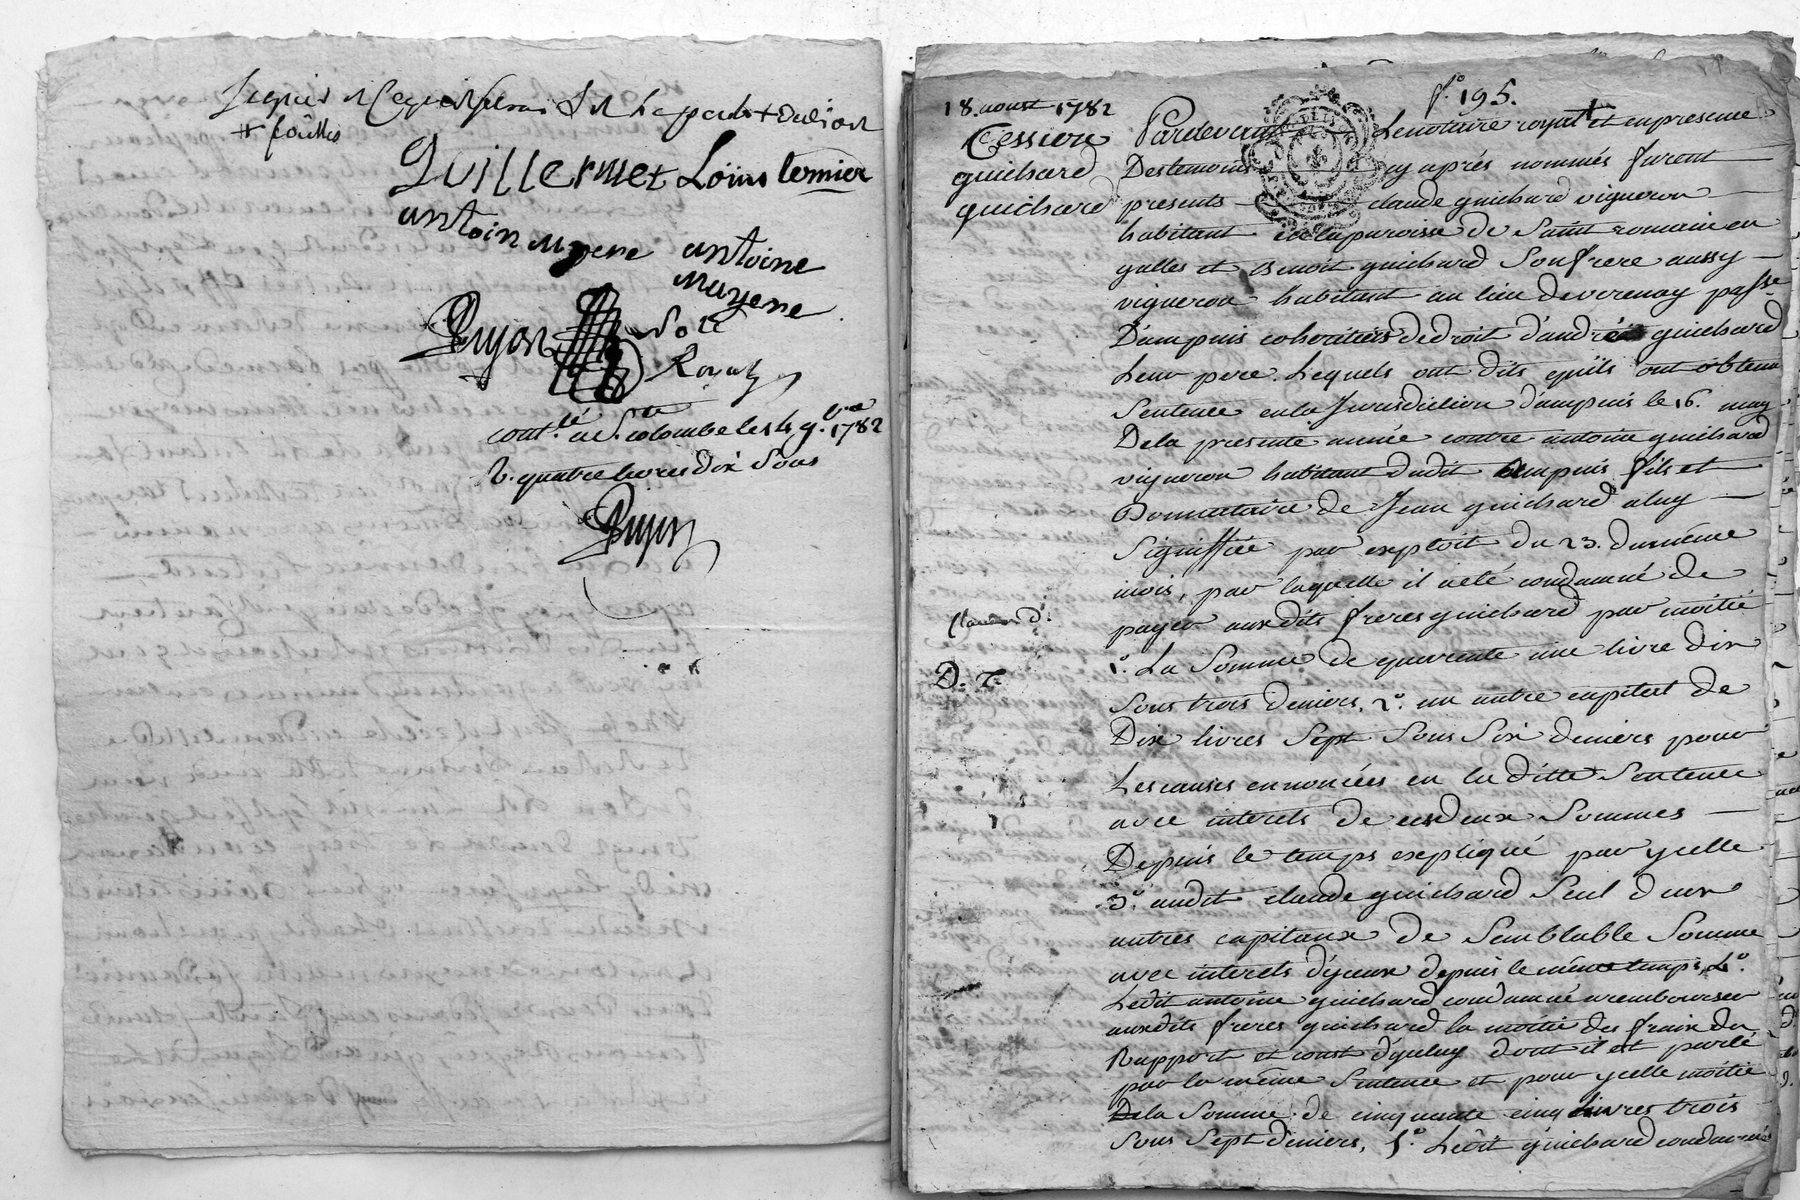 # foüilles
Guillermet Loüis temier
antoin mayere antoine
mayere
Dujon Not
Royal
cont.lé a S.te colombe le 14 9.bre 1782
R. quatre livres dix sous
Dujon
f.o 195.
18. aoust 1782
Cession
guichard
guichard
Pardevant Le notaire royal et en presence
Des temoins cy aprés nommés furent
presents claude guichard vigneron
habitant en la paroisse de Saint romain en
galles et Benoit guichard Son frere aussy
vigneron habitant au lieu de verenay passe
D'ampuis coheritiers de droit d'andré guichard
Leur pere. Lequels ont dits qu'ils ont obtenu
Sentence en la Jurisdiction d'ampuis le 16. may
De la presente année contre antoine guichard
vigneron habitant dudit ampuis fils et
Donnataire de Jean guichard a luy
Signiffiée par exploit du 23. du même
mois, par laquelle il a eté condamné de
payer auxdits freres guichard par moitié
1.o La Somme de quarente une livre dix
Sous trois deniers, 2.o un autre capital de
Dix livres Sept Sous Six deniers pour
Les causes ennoncées en la ditte Sentence
avec interets de ces deux Sommes
Depuis le temps expliqué par ycelle
3.o audit claude guichard Seul deux
autres capitaux de Semblable Somme
avec interets d'yceux depuis le même temps, 4.o
Ledit antoine guichard condamné a rembourser
auxdits freres guichard la moitié des fraix du
Rapport et coust d'yceluy dont il est parlé
par la même Sentence et pour ycelle moitié
De la Somme de cinquente cinq livres trois
Sous Sept deniers, 5.o Ledit guichard condamné
D. T.